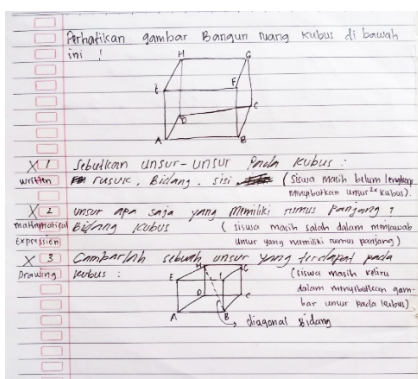 Perhatikan gambar Bangun ruang kubus di bawah
ini !
H G
E F
D C
A B
X 1 Sebutkan unsur-unsur Pada kubus :
written rusuk, Bidang, sisi (siswa masih belum lengkap
menyebutkan unsur2x kubus).
X 2 unsur apa saja yang memiliki rumus panjang ?
mathematical Bidang kubus (siswa masih salah dalam menjawab
expression unsur yang memiliki rumus panjang)
X 3 Gambarlah sebuah unsur yang terdapat pada
Drawing kubus : (siswa masih keliru
dalam menyebutkan gam-
bar unsur pada kubus).
H G
E F
D C
A B
diagonal Bidang